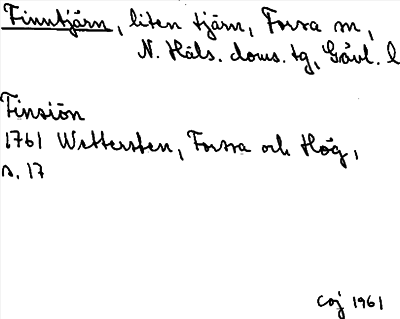 Finntjärn, liten tjärn, Forsa sn,
N. Häls. doms. tg, Gävl. l
Finsiön
1761 Wettersten, Forssa och Hög,
s. 17
COJ 1961